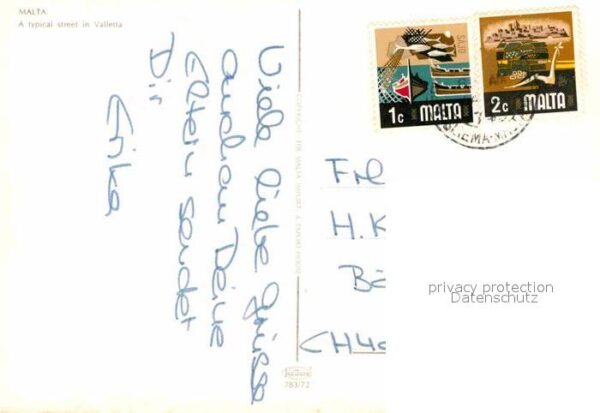 MALTA
A typical street in Valletta
Viele liebe Grüsse
auch an Deine
Eltern sendet
Dir
Erika
COPYRIGHT FOR MALTA IMPORT & EXPORT HOUSE
783/72
1c MALTA
2c MALTA
H.K
CH
privacy protection
Datenschutz